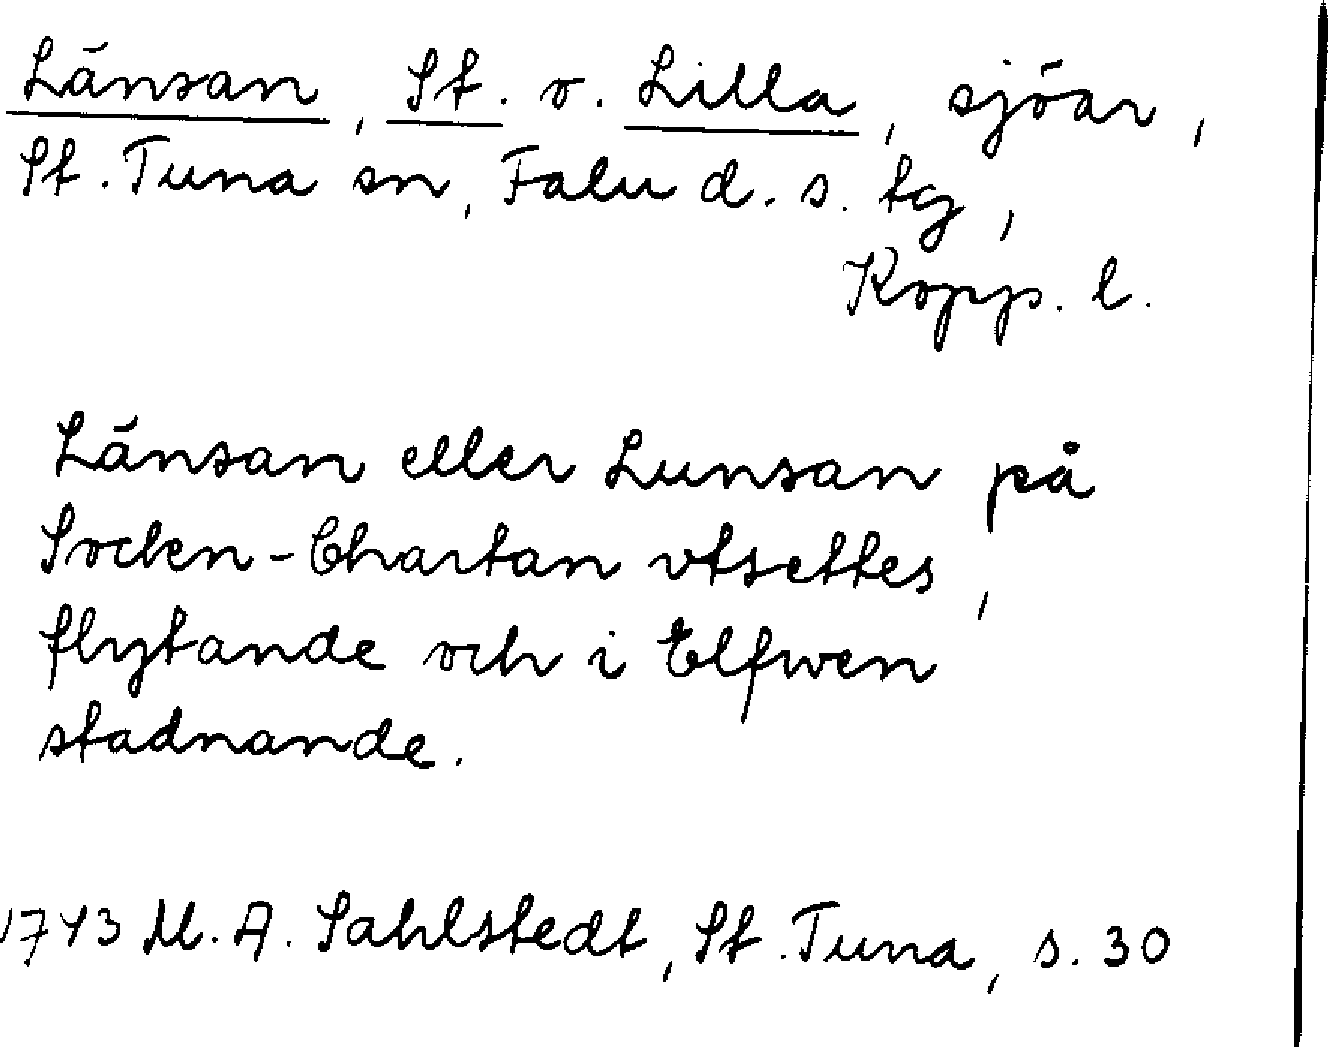 Länsan, St. o. Lilla, sjöar,
St. Tuna sn, Falu d. s. tg,
Kopp. l.
Länsan eller Lunsan på
Socken-Chartan vtsettes,
flytande och i Elfwen
stadnande.
1743 M. A. Sahlstedt, St. Tuna, s. 30